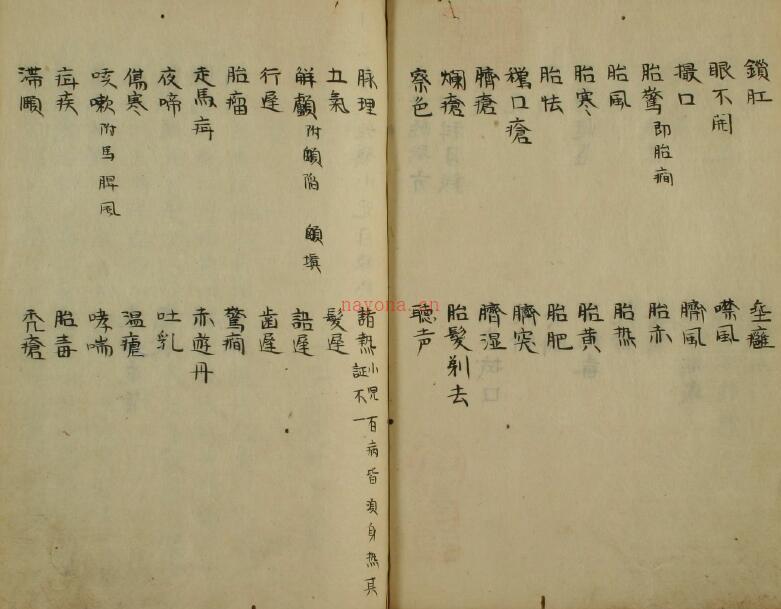 鎖肛 垂癰
眼不開 噤風
撮口 臍風
胎驚 即胎癇 胎赤
胎風 胎热
胎寒 胎黄
胎怯 胎肥
鵞口瘡 臍突
臍瘡 臍湿
爛瘡 胎髮剃去
察色 聴声
脉理 諸热 小児百病皆須身热其証不一
五氣 髮遅
解顱 附顖陷 顖填 語遅
行遅 歯遅
胎瘤 驚癇
走馬疳 赤遊丹
夜啼 吐乳
傷寒 温瘧
咳嗽 附馬脾風 哮喘
疳疾 胎毒
滞頤 禿瘡
nayona.cn